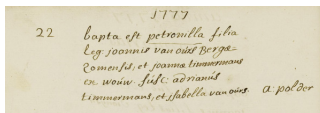 1777
22 bapta est petronilla filia
leg joannis van ours Bergæ-
Zomensis, et joanna timmermans
en wouw. susc: adrianus
timmermans, et isabella van ours. a polder